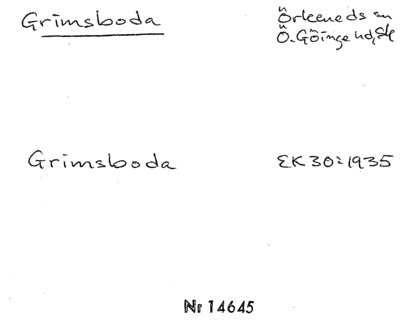 Grimsboda
Örkeneds sn
Ö. Göinge hd, Sk
Grimsboda
EK 30:1935
Nr 14645